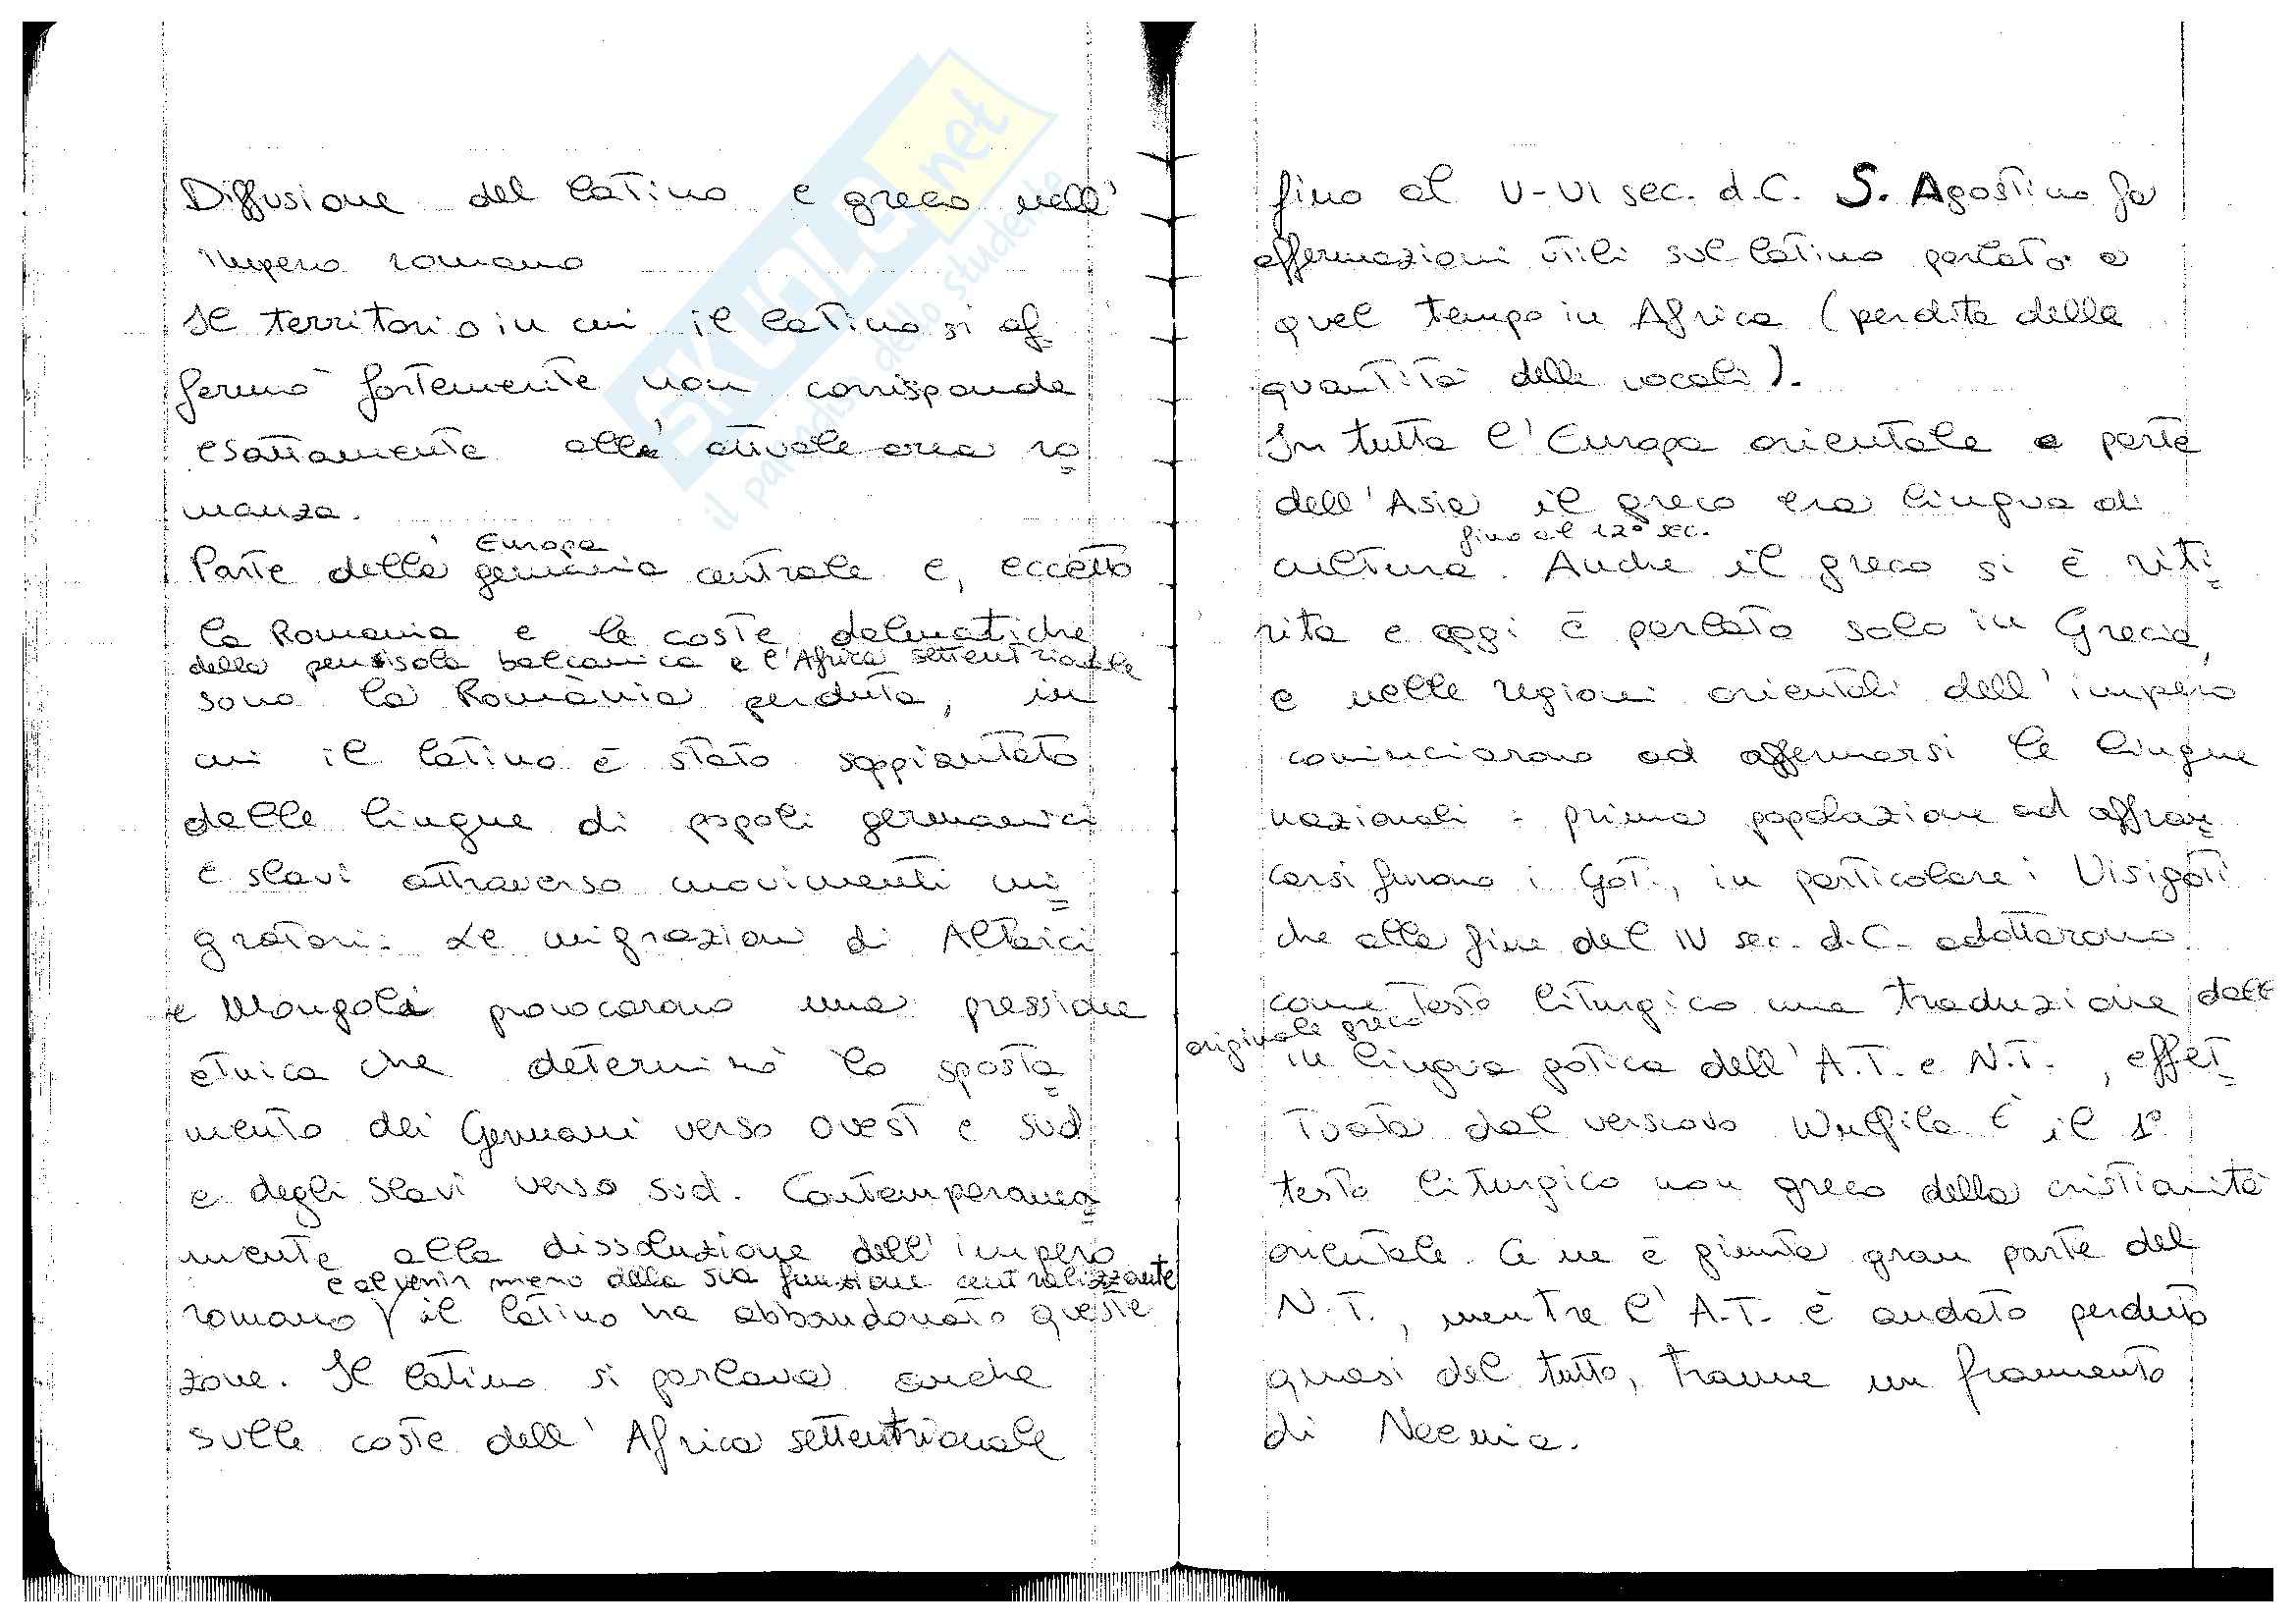 Diffusione del latino e greco nell'
impero romano
Il territorio in cui il latino si af
fermò fortemente non corrisponde
esattamente alla attuale area ro
manza.
Europa
Parte della germania centrale e, eccetto
la Romania e le coste dalmatiche
della penisola balcanica e l'Africa settentrionale
sono la Romània perduta, in
cui il latino è stato soppiantato
dalle lingue di popoli germanici
e slavi attraverso movimenti mi
gratori. Le migrazioni di Altaici
e Mongoli provocarono una pressione
etnica che determinò lo sposta
mento dei Germani verso ovest e sud
e degli Slavi verso sud. Contemporanea
mente alla dissoluzione dell'impero
e al venir meno della sua funzione centralizzante
romano il latino ha abbandonato queste
zone. Il latino si parlava anche
sulle coste dell'Africa settentrionale
fino al V-VI sec. d.C. S. Agostino fa
affermazioni utili sul latino parlato a
quel tempo in Africa (perdita della
quantità delle vocali).
In tutta l'Europa orientale e parte
dell'Asia il greco era lingua di
fino al 12° sec.
cultura. Anche il greco si è riti
rita e oggi è parlato solo in Grecia,
e nelle regioni orientali dell'impero
cominciarono ad affermarsi le lingue
nazionali: prima popolazione ad affran
carsi furono i Goti, in particolare i Visigoti
che alla fine del IV sec. d.C. adottarono
come testo liturgico una traduzione dall
originale greco
in lingua gotica dell'A.T. e N.T., effet
tuata dal vescovo Wulfila È il 1°
testo liturgico non greco della cristianità
orientale. Ci ne è giunta gran parte del
N.T., mentre l'A.T. è andato perduto
quasi del tutto, tranne un frammento
di Neemia.
SKUOLA.net
il paradiso dello studente